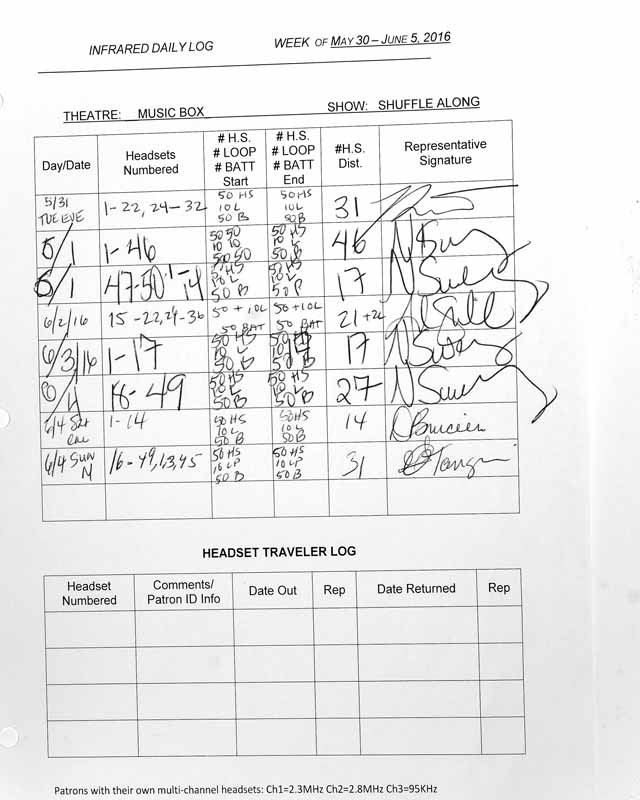 INFRARED DAILY LOG WEEK OF MAY 30 – JUNE 5, 2016
THEATRE: MUSIC BOX SHOW: SHUFFLE ALONG
Day/Date
Headsets Numbered
# H.S. # LOOP # BATT Start
# H.S. # LOOP # BATT End
#H.S. Dist.
Representative Signature
5/31 TUE EVE 1-22, 24-32 50 HS 10 L 50 B 50 HS 10 L 50 B 31
6/1 1-46 46
6/1 47-50 1-14 17
6/2/16 15-22, 24-36 50 + 10L 50 BAT 50 + 10L 50 BAT 21
6/3/16 1-17 50 HS 10 L 50 B 17
18-49 50 HS 10 L 50 B 50 HS 10 L 50 B 27
6/4 1-14 50 HS 10 L 50 B 50 HS 10 L 50 B 14
6/4 SUN M 16-49, 1, 3, 45 50 HS 10 LP 50 B 50 HS 10 LP 50 B 31
HEADSET TRAVELER LOG
Headset Numbered
Comments/ Patron ID Info
Date Out
Rep
Date Returned
Rep
Patrons with their own multi-channel headsets: Ch1=2.3MHz Ch2=2.8MHz Ch3=95KHz